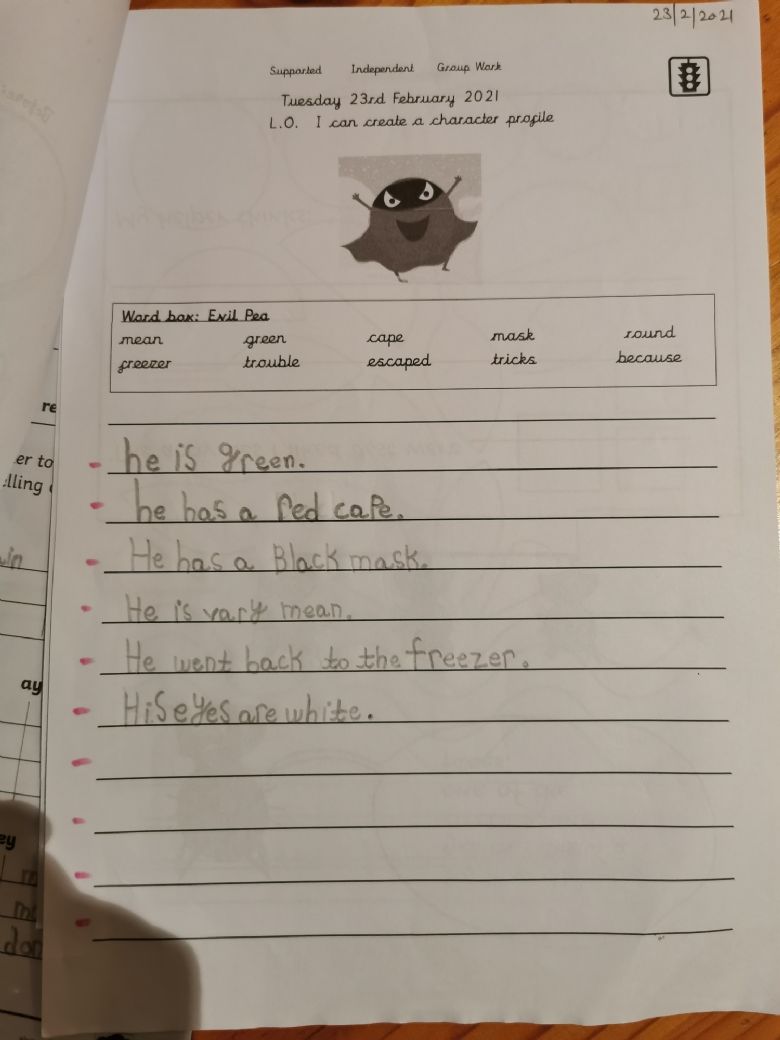 23/2/2021
Supported Independent Group Work
Tuesday 23rd February 2021
L.O. I can create a character profile
Word box: Evil Pea
mean green cape mask round
freezer trouble escaped tricks because
he is green.
he has a red cape.
He has a Black mask.
He is vary mean.
He went back to the freezer.
His eyes are white.
re
er to
lling
in
ay
ey
m
me
don